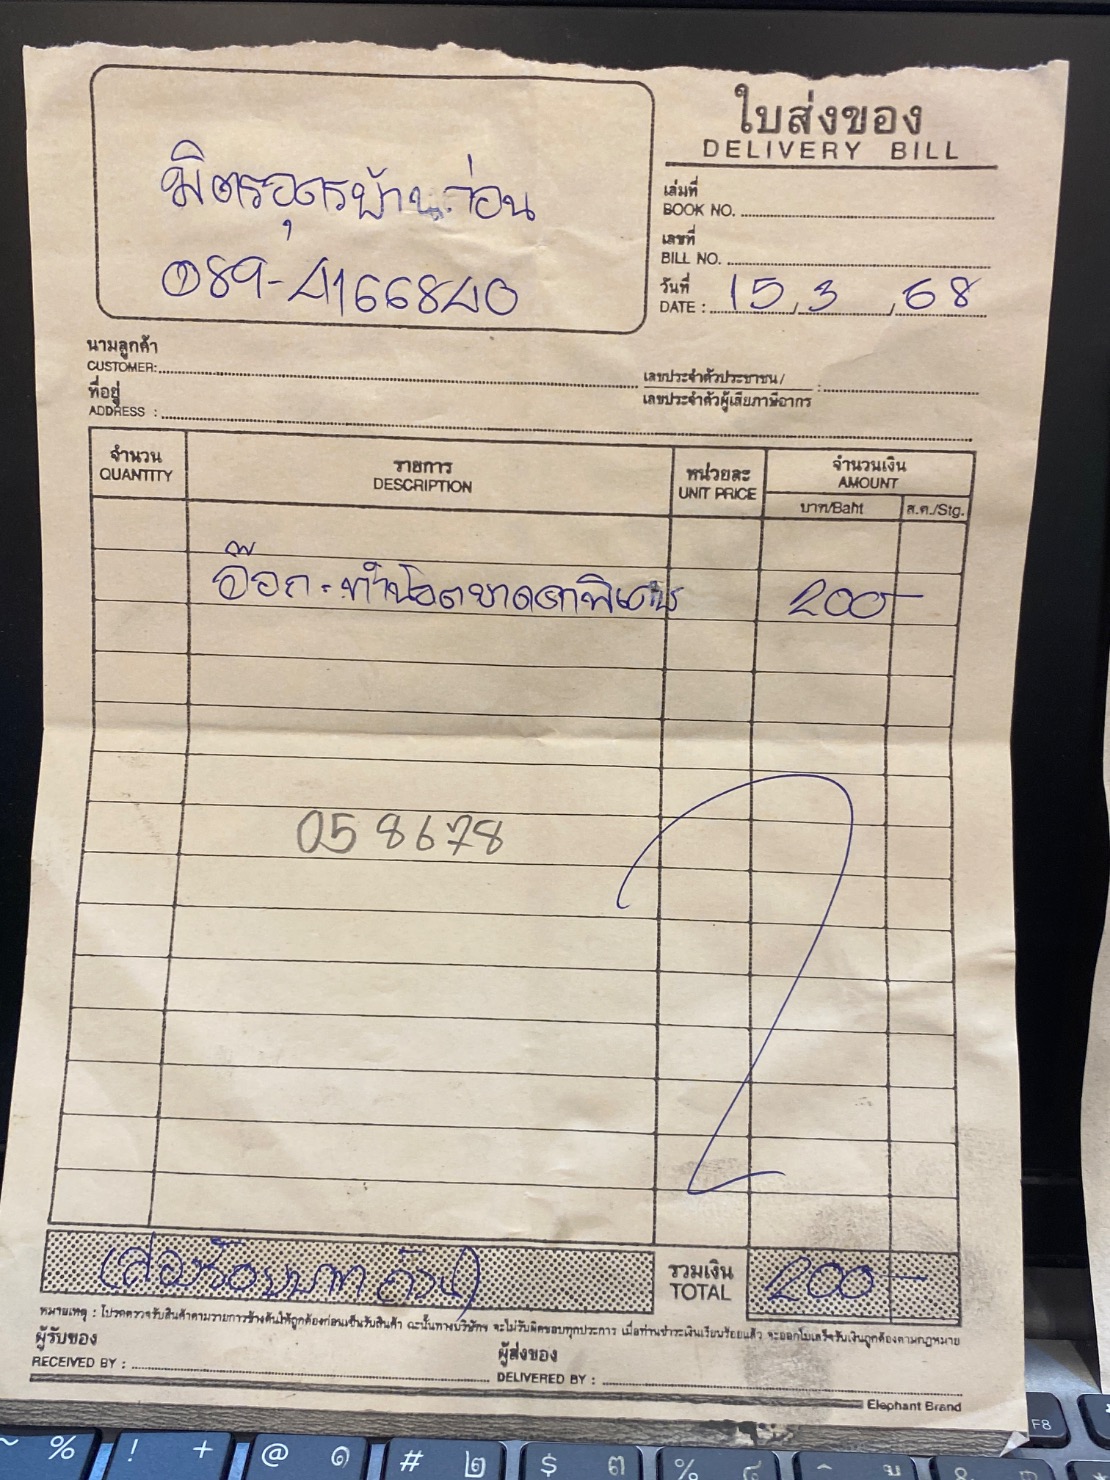 ใบส่งของ
DELIVERY BILL
มิตรอุดรบ้านก่อน
089-4166840
เล่มที่
BOOK NO.
เลขที่
BILL NO.
วันที่
DATE : 15, 3, 68
นามลูกค้า
CUSTOMER:
เลขประจำตัวประชาชน/ :
เลขประจำตัวผู้เสียภาษีอากร
ที่อยู่
ADDRESS :
จำนวน รายการ หน่วยละ จำนวนเงิน
QUANTITY DESCRIPTION UNIT PRICE AMOUNT
บาท/Baht ส.ต./Stg.
อ๊อก 200-
058678
(สองร้อยบาทถ้วน) รวมเงิน 200-
TOTAL
หมายเหตุ : โปรดตรวจรับสินค้าตามรายการข้างต้นให้ถูกต้องก่อนเซ็นรับสินค้า ฉะนั้นทางบริษัทฯ จะไม่รับผิดชอบทุกประการ เมื่อท่านชำระเงินเรียบร้อยแล้ว จะออกใบเสร็จรับเงินถูกต้องตามกฎหมาย
ผู้รับของ ผู้ส่งของ
RECEIVED BY : DELIVERED BY :
Elephant Brand
F8
~ % ! + @ ๑ # ๒ $ ๓ % ๔